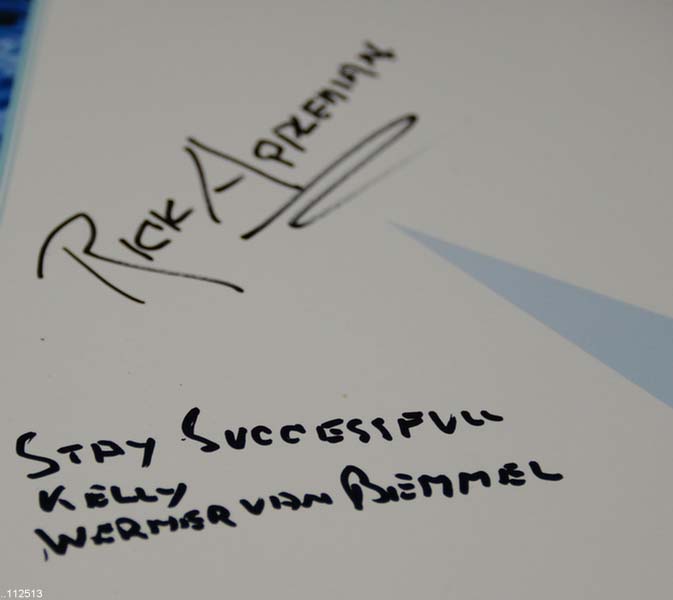 RICK
STAY SUCCESSFULL
KELLY
WERNER VAN BEMMEL
..112513